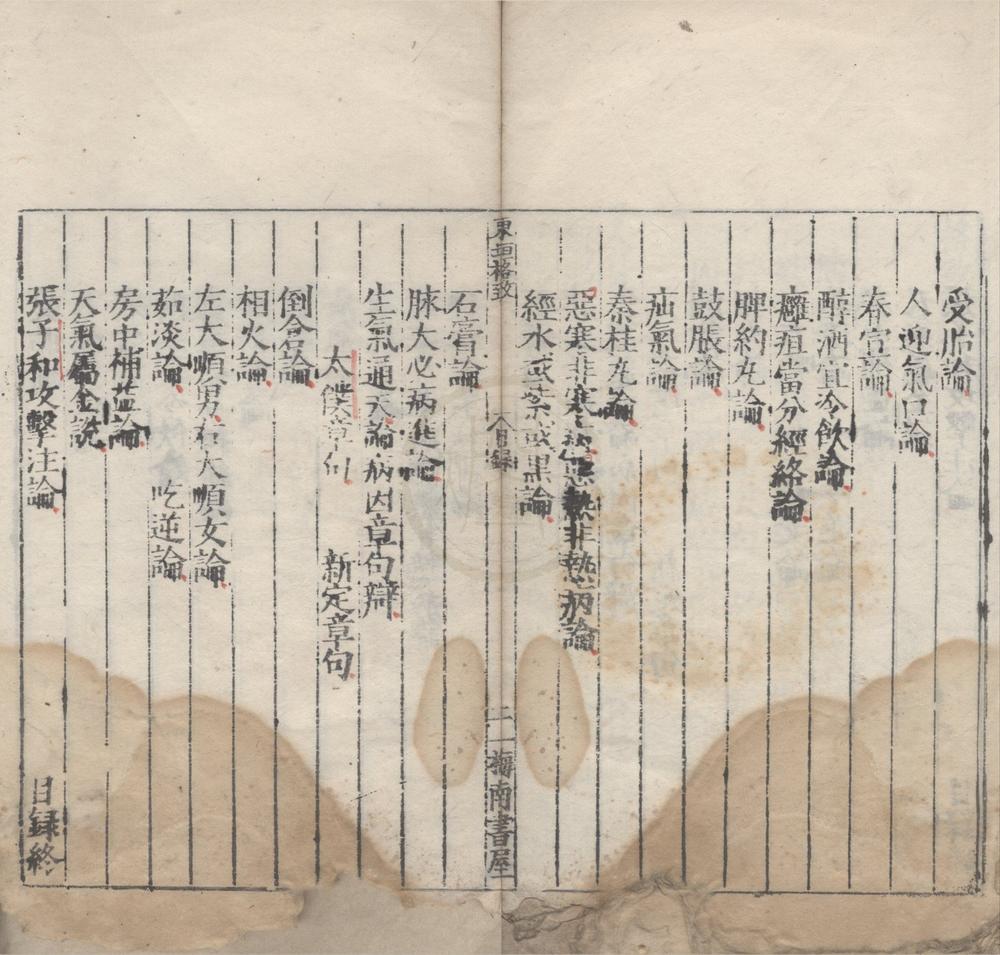 受胎論
人迎氣口論
春宣論
醇酒宜冷飲論
癰疽當分經絡論
脾約丸論
鼓脹論
疝氣論
秦桂丸論
惡寒非寒病惡熱非熱病論
經水或紫或黑論
東垣格致
目錄
二
梅南書屋
石膏論
脉大必病進論
生氣通天論病因章句辯
太僕章句 新定章句
倒倉論
相火論
左大順男右大順女論
茹淡論 吃逆論
房中補益論
天氣屬金說
張子和攻擊注論
目録終